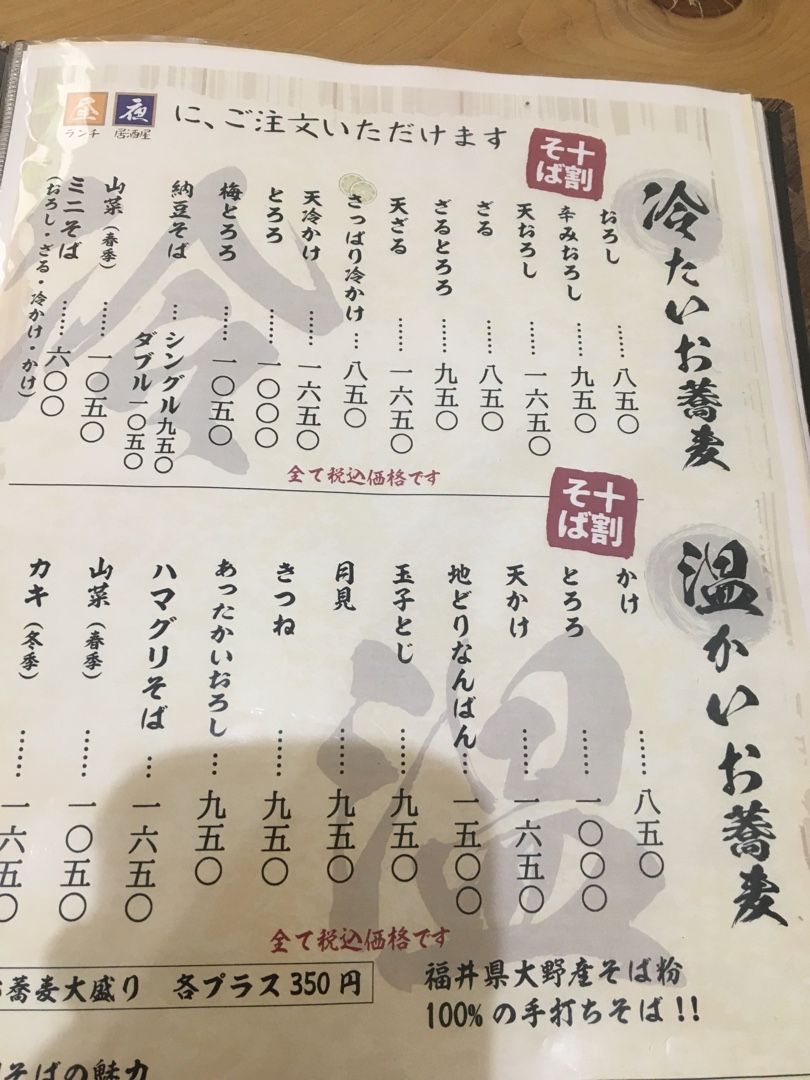 昼 夜 に、ご注文いただけます
ランチ 居酒屋
冷たいお蕎麦
十割そば
おろし……八五〇
辛みおろし……九五〇
天おろし……一六五〇
ざる……八五〇
ざるとろろ……九五〇
天ざる……一六五〇
さっぱり冷かけ…八五〇
天冷かけ……一六五〇
とろろ……一〇〇〇
梅とろろ……一〇五〇
納豆そば…シングル九五〇
ダブル一〇五〇
山菜(春季)……一〇五〇
ミニそば……六〇〇
(おろし・ざる・冷かけ・かけ)
全て税込価格です
温かいお蕎麦
十割そば
かけ……八五〇
とろろ……一〇〇〇
天かけ……一六五〇
地どりなんばん…一五〇〇
玉子とじ……九五〇
月見……九五〇
きつね……九五〇
あったかいおろし…九五〇
ハマグリそば…一六五〇
山菜(春季)……一〇五〇
カキ(冬季)……一六五〇
全て税込価格です
お蕎麦大盛り 各プラス350円
福井県大野産そば粉
100%の手打ちそば!!
そばの魅力
冷
温